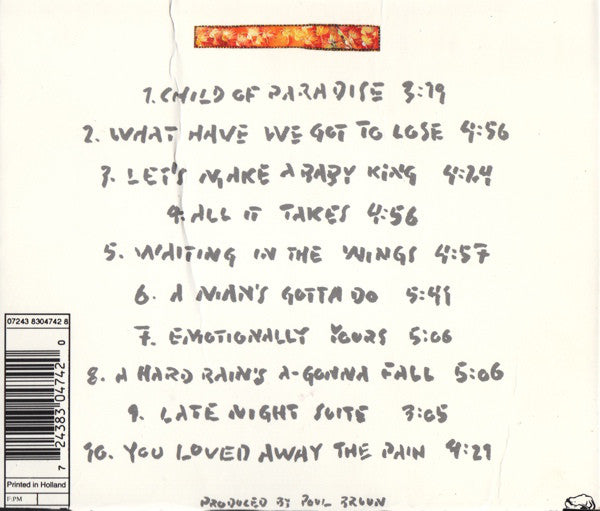 1. CHILD OF PARADISE 3:19
2. WHAT HAVE WE GOT TO LOSE 4:56
3. LET'S MAKE A BABY KING 4:24
4. ALL IT TAKES 4:56
5. WAITING IN THE WINGS 4:57
6. A MAN'S GOTTA DO 5:49
7. EMOTIONALLY YOURS 5:06
8. A HARD RAIN'S A-GONNA FALL 5:06
9. LATE NIGHT SUITE 3:05
10. YOU LOVED AWAY THE PAIN 4:29
07243 8304742 8
7 24383 04742 0
Printed in Holland
F:PM
PRODUCED BY POUL BRUUN